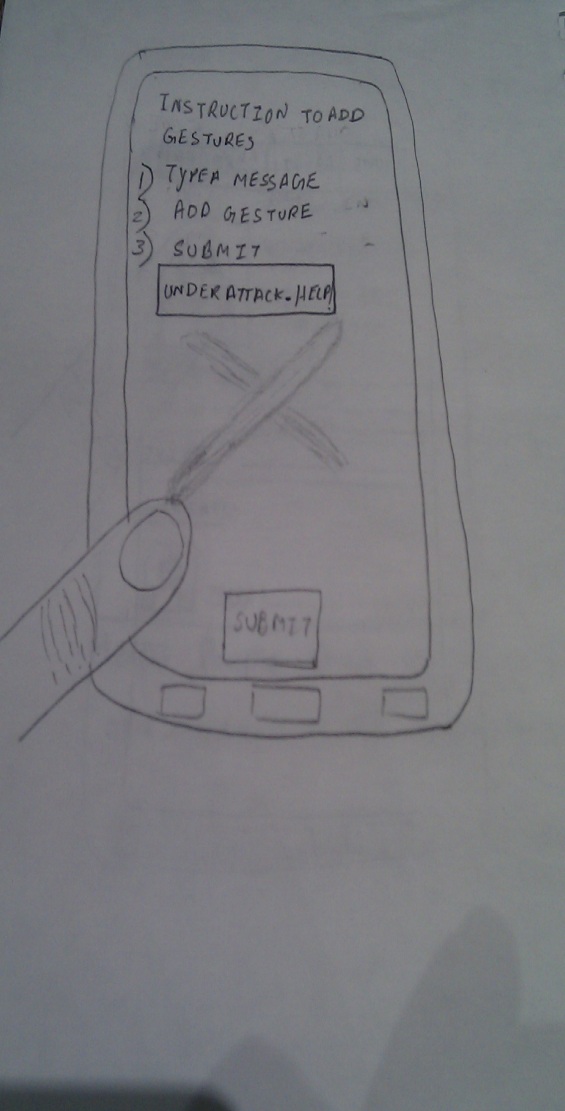 INSTRUCTION TO ADD
GESTURES
1) TYPE A MESSAGE
2) ADD GESTURE
3) SUBMIT
UNDER ATTACK. HELP!
SUBMIT